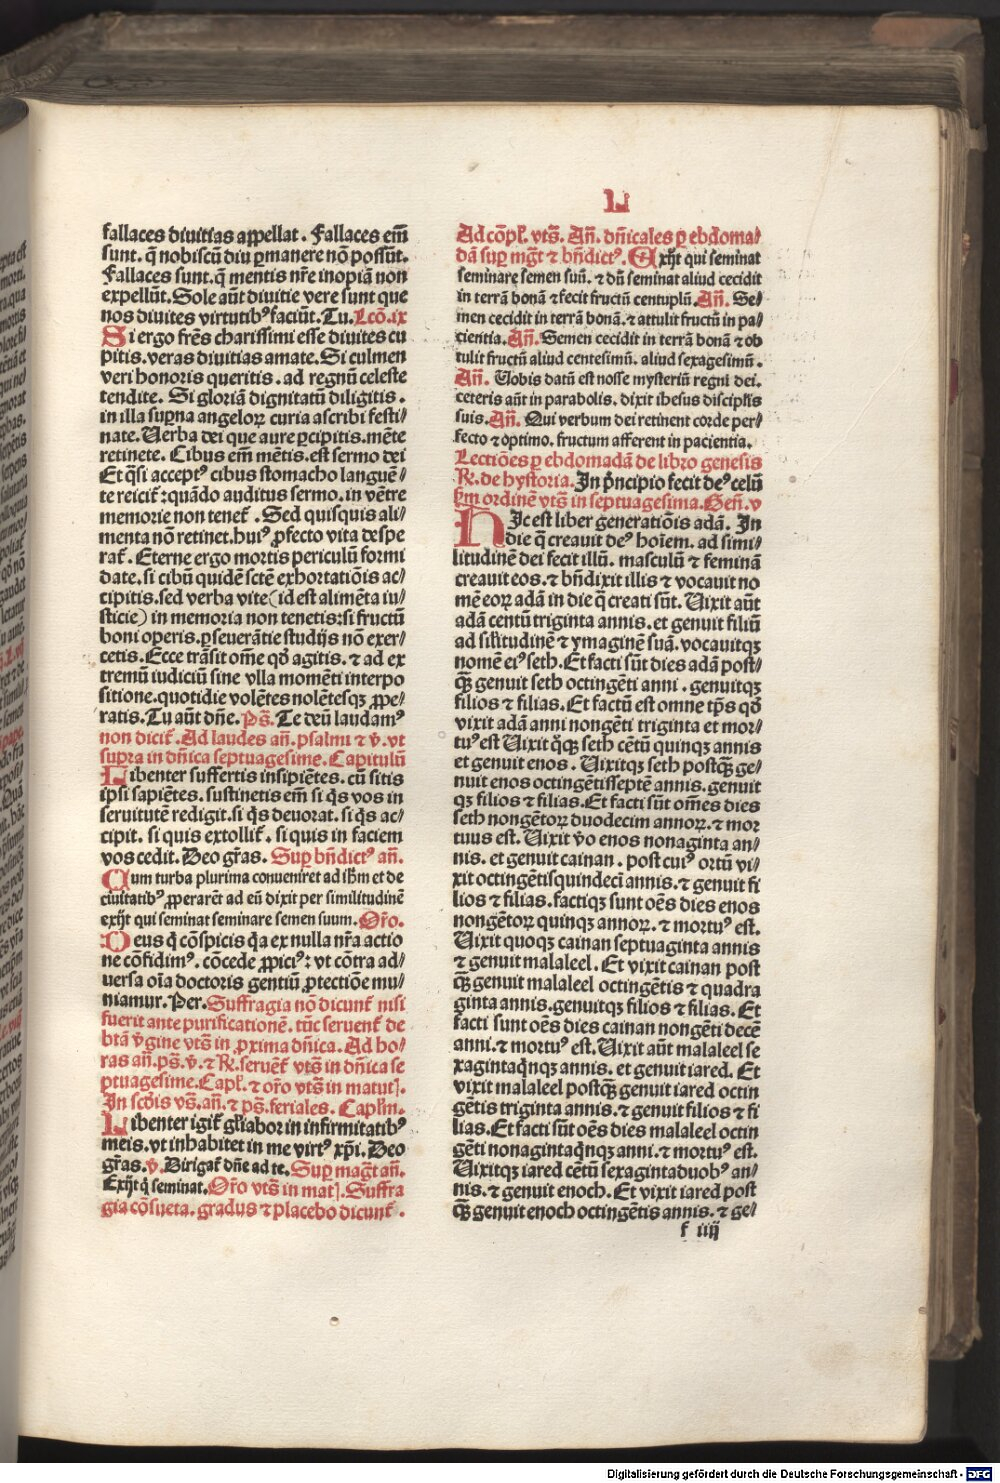 L
fallaces diuitias appellat. Fallaces em̄
sunt. q̄ nobiscū diu ꝑmanere nō possūt.
Fallaces sunt. q̄ mentis nr̄e inopiā non
expellūt. Sole aūt diuitie vere sunt que
nos diuites virtutibꝰ faciūt. Tu. Lcō. ix
Si ergo frēs charissimi esse diuites cu
pitis. veras diuitias amate. Si culmen
veri honoris queritis. ad regnū celeste
tendite. Si gloriā dignitatū diligitis.
in illa suꝑna angeloꝝ curia ascribi festi/
nate. Uerba dei que aure ꝑcipitis. mēte
retinete. Cibus em̄ mētis. est sermo dei
Et q̄si acceptꝰ cibus stomacho languē/
te reicit̄: quādo auditus sermo. in vētre
memorie non tenet̄. Sed quisquis ali/
menta nō retinet. huiꝰ ꝓfecto vita despe
rat̄. Eterne ergo mortis periculū formi
date. si cibū quidē sctē exhortatiōis ac/
cipitis. sed verba vite (id est alimēta iu/
sticie) in memoria non tenetis: si fructū
boni operis. ꝑseuerātie studijs nō exer/
cetis. Ecce trāsit om̄e qd̄ agitis. ⁊ ad ex
tremū iudiciū sine vlla momēti interpo
sitione. quotidie volētes nolētesqꝫ ꝓpe/
ratis. Tu aūt dn̄e. Ps̄. Te deū laudamꝰ
non dicit̄. Ad laudes an̄. psalmi ⁊ v̄. vt
supra in dn̄ica septuagesime. Capitulū
Libenter suffertis insipiētes. cū sitis
ipsi sapiētes. sustinetis em̄ si q̄s vos in
seruitutē redigit. si q̄s deuorat. si q̄s ac/
cipit. si quis extollit̄. si quis in faciem
vos cedit. Deo gr̄as. Suꝑ bn̄dictꝰ an̄.
Cum turba plurima conueniret ad ih̄m et de
ciuitatibꝰ ꝓperarēt ad eū dixit per similitudinē
exijt qui seminat seminare semen suum. Or̄o.
Deus q̄ cōspicis q̄a ex nulla nr̄a actio
ne cōfidimꝰ. cōcede ꝓpiciꝰ: vt cōtra ad/
uersa oīa doctoris gentiū ꝓtectiōe mu/
niamur. Per. Suffragia nō dicunt̄ nisi
fuerit ante purificationē. tūc seruent̄ de
btā v̄gine vts̄ in ꝓxima dn̄ica. Ad ho/
ras an̄. ps̄. v̄. ⁊ R̄. seruēt̄ vts̄ in dn̄ica se
ptuagesime. Capl̄. ⁊ or̄o vts̄ in matut̄.
In scd̄is vs̄. an̄. ⁊ ps̄. feriales. Capl̄m.
Libenter igit̄ gl̄iabor in infirmitatibꝰ
meis. vt inhabitet in me virtꝰ xp̄i. Deo
gr̄as. v̄. Dirigat̄ dn̄e ad te. Suꝑ magt̄ an̄.
Exijt q̄ seminat. Or̄o vts̄ in mat̄. Suffra
gia cōsueta. gradus ⁊ placebo dicunt̄.
Ad cōpl̄. vts̄. An̄. dn̄icales ꝑ ebdoma/
dā suꝑ mḡt ⁊ bn̄dictꝰ. Exijt qui seminat
seminare semen suū. ⁊ dū seminat aliud cecidit
in terrā bonā ⁊ fecit fructū centuplū. An̄. Se/
men cecidit in terrā bonā. ⁊ attulit fructū in pa/
cientia. An̄. Semen cecidit in terrā bonā ⁊ ob
tulit fructū aliud centesimū. aliud sexagesimū.
An̄. Uobis datū est nosse mysteriū regni dei.
ceteris aūt in parabolis. dixit ihesus discipulis
suis. An̄. Qui verbum dei retinent corde per/
fecto ⁊ optimo. fructum afferent in pacientia.
Lectiōes ꝑ ebdomadā de libro genesis
R̄. de hystoria. In pͥncipio fecit deꝰ celū
ẜm ordinē vts̄ in septuagesima. Gen̄. v
Hic est liber generatiōis adā. In
die q̄ creauit deꝰ hoīem. ad simi/
litudinē dei fecit illū. masculū ⁊ feminā
creauit eos. ⁊ bn̄dixit illis ⁊ vocauit no
mē eoꝝ adā in die q̄ creati sūt. Uixit aūt
adā centū triginta annis. et genuit filiū
ad sil̄itudinē ⁊ ymaginē suā. vocauitqꝫ
nomē eiꝰ seth. Et facti sūt dies adā post/
q̄ꝫ genuit seth octingēti anni. genuitqꝫ
filios ⁊ filias. Et factū est omne tp̄s qd̄
vixit adā anni nongēti triginta et mor/
tuꝰ est Uixit q̊qꝫ seth cētū quinqꝫ annis
et genuit enos. Uixitqꝫ seth postq̄ꝫ ge/
nuit enos octingētisseptē annis. genuit
qꝫ filios ⁊ filias. Et facti sūt om̄es dies
seth nongētoꝝ duodecim annoꝝ. ⁊ mor
tuus est. Uixit v̊o enos nonaginta an/
nis. et genuit cainan. post cuiꝰ ortū vi/
xit octingētisquindecī annis. ⁊ genuit fi
lios ⁊ filias. factiqꝫ sunt oēs dies enos
nongētoꝝ quinqꝫ annoꝝ. ⁊ mortuꝰ est.
Uixit quoqꝫ cainan septuaginta annis
⁊ genuit malaleel. Et vixit cainan post
q̄ꝫ genuit malaleel octingētis ⁊ quadra
ginta annis. genuitqꝫ filios ⁊ filias. Et
facti sunt oēs dies cainan nongēti decē
anni. ⁊ mortuꝰ est. Uixit aūt malaleel se
xagintaqͥnqꝫ annis. et genuit iared. Et
vixit malaleel postq̄ꝫ genuit iared octin
gētis triginta annis. ⁊ genuit filios ⁊ fi
lias. Et facti sūt oēs dies malaleel octin
gēti nonagintaqͥnqꝫ anni. ⁊ mortuꝰ est.
Uixitqꝫ iared cētū sexagintaduobꝰ an/
nis. ⁊ genuit enoch. Et vixit iared post
q̄ꝫ genuit enoch octingētis annis. ⁊ ge/
f iiij
Digitalisierung gefördert durch die Deutsche Forschungsgemeinschaft - DFG